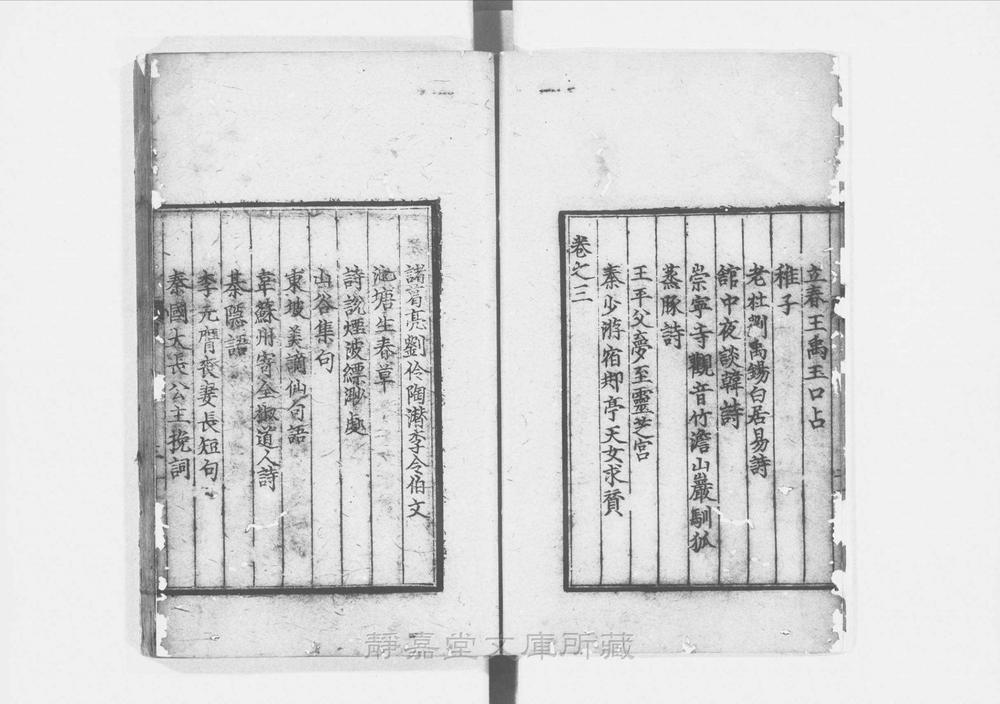 立春王禹玉口占
稚子
老杜劉禹錫白居易詩
舘中夜談韓詩
崇寧寺觀音竹澹山巖馴狐
蒸豚詩
王平父夢至靈芝宮
秦少游宿郵亭天女求賛
卷之三
諸葛亮劉伶陶潛李令伯文
池塘生春草
詩說煙波縹渺處
山谷集句
東坡美謫仙句語
韋蘇州寄全椒道人詩
棊隱語
李元膺喪妻長短句
秦國大長公主挽詞
靜嘉堂文庫所藏